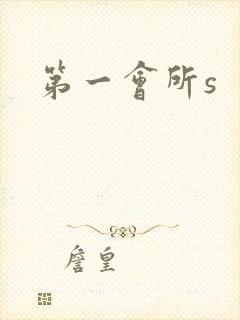 第一會所s
詹皇